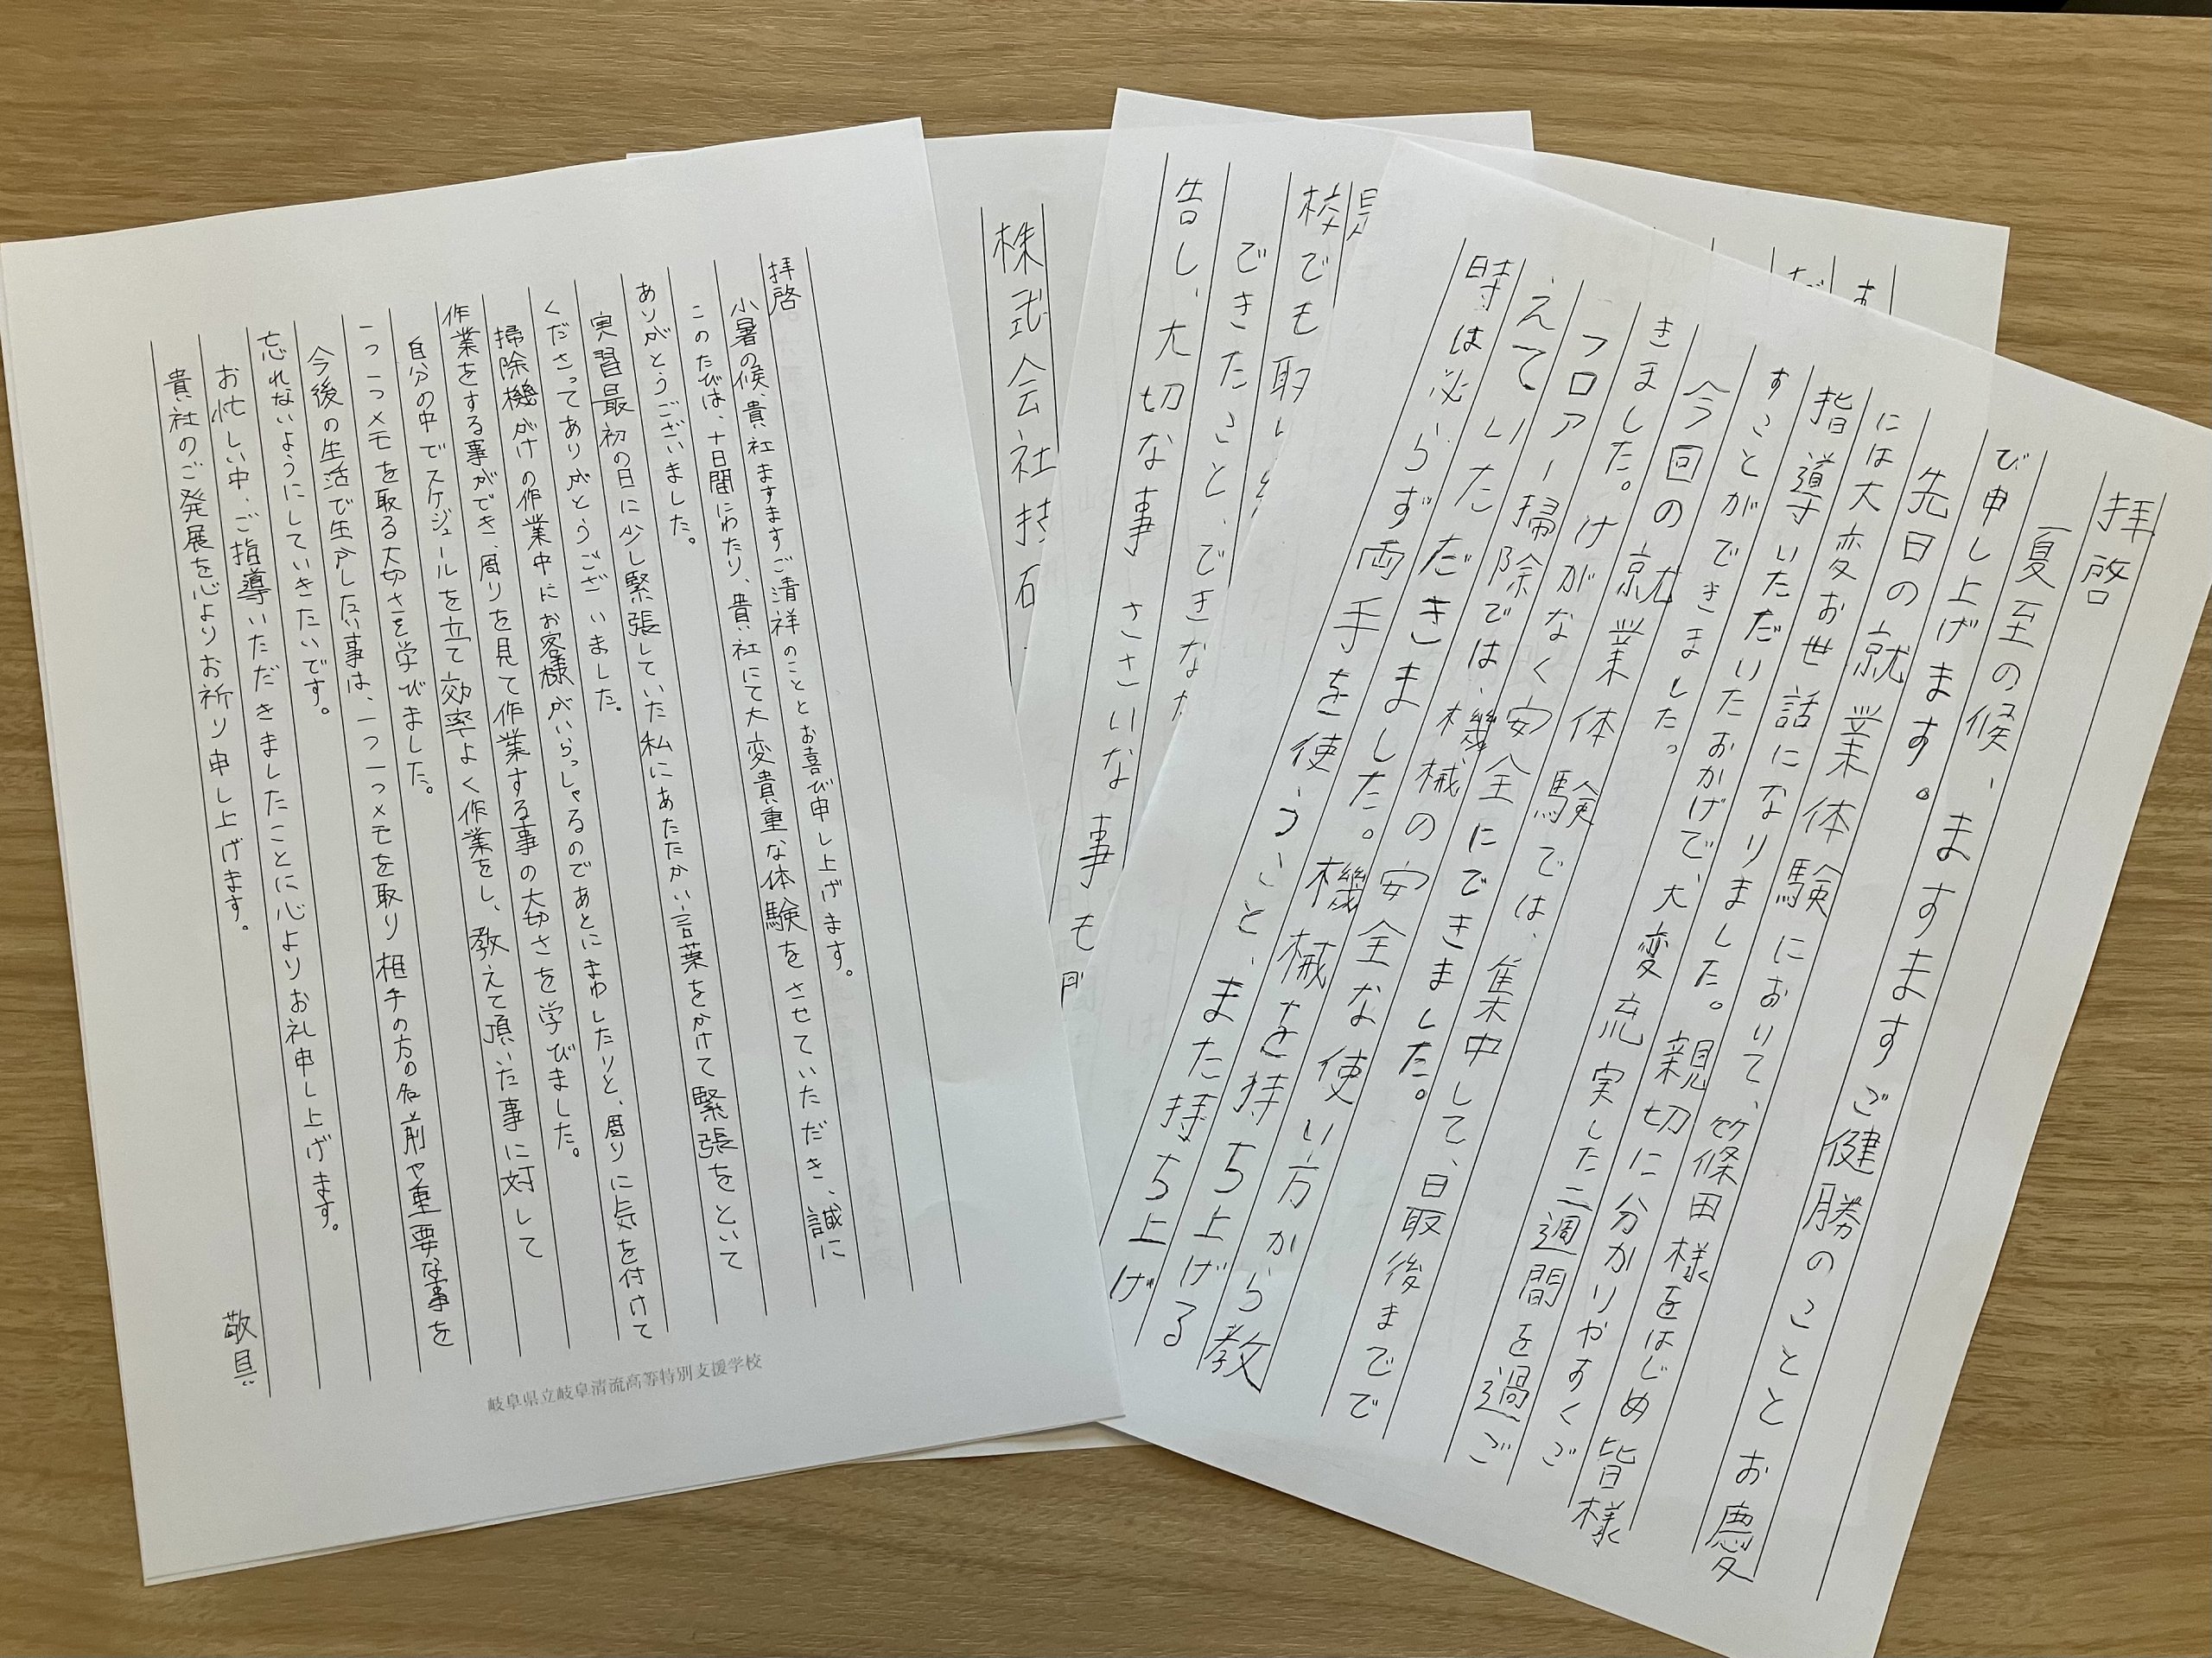 拝啓
小暑の候、貴社ますますご清祥のこととお喜び申し上げます。
このたびは、十日間にわたり、貴社にて大変貴重な体験をさせていただき、誠に
ありがとうございました。
実習最初の日に少し緊張していた私にあたたかい言葉をかけて緊張をといて
くださってありがとうございました。
掃除機がけの作業中にお客様がいらっしゃるのであとにまわしたりと、周りに気を付けて
作業をする事ができ、周りを見て作業する事の大切さを学びました。
自分の中でスケジュールを立て効率よく作業をし、教えて頂いた事に対して
一つ一つメモを取る大切さを学びました。
今後の生活で生かしたい事は、一つ一つメモを取り相手の方の名前や重要な事を
忘れないようにしていきたいです。
お忙しい中、ご指導いただきましたことに心よりお礼申し上げます。
貴社のご発展を心よりお祈り申し上げます。
敬具
岐阜県立岐阜清流高等特別支援学校
株式会社
校でも取り
できたこと、できなか
告し、大切な事 ささいな 事も
拝啓
夏至の候、ますますご健勝のこととお慶
び申し上げます。
先日の就業体験において、篠田様をはじめ皆様
には大変お世話になりました。親切に分かりやすくご
指導いただいたおかげで、大変充実した二週間を過ご
すことができました。
今回の就業体験では、集中して、最後までで
きました。けがなく安全にできました。
フロアー掃除では、機械の安全な使い方から教
えていただきました。機械を持ち上げる
時は必らず両手を使うこと、また持ち上げ